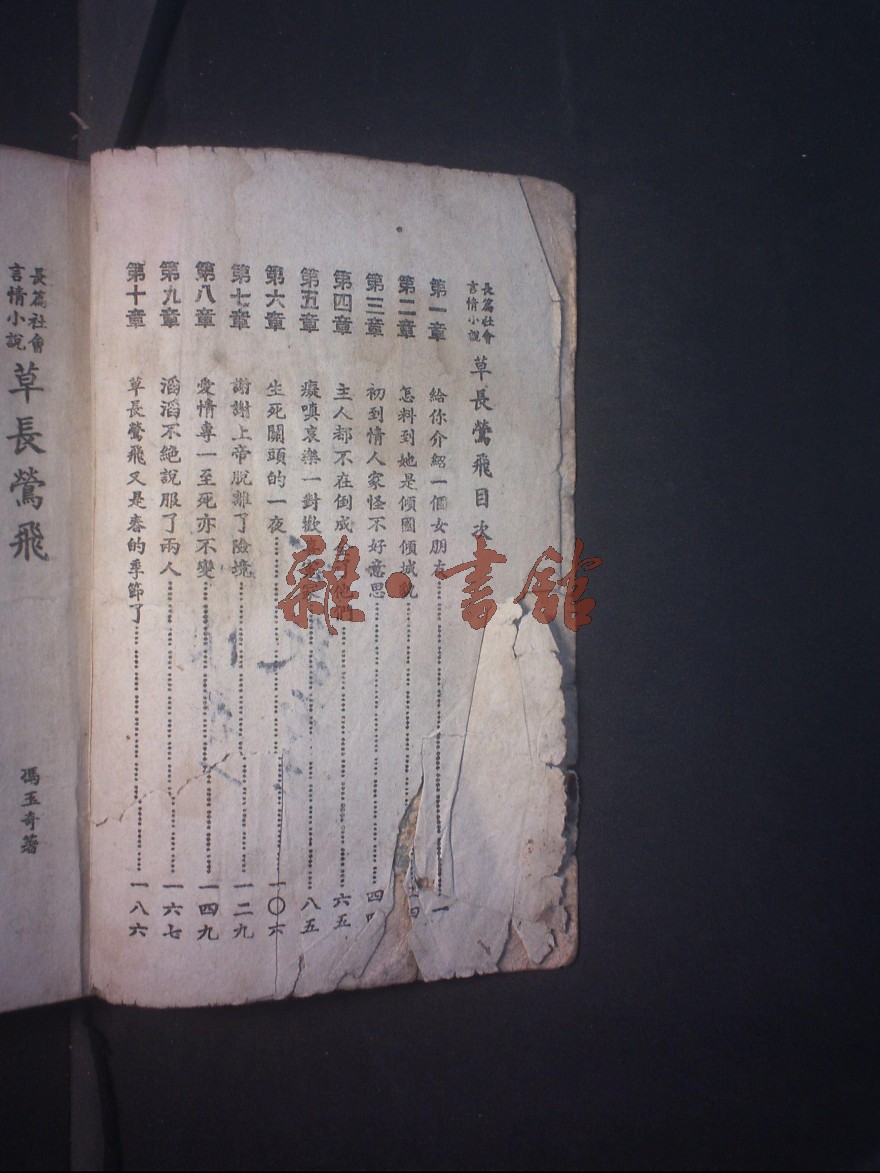 長篇社會
言情小說
草長鶯飛目次
第一章 給你介紹一個女朋友……一
第二章 怎料到她是傾國傾城貌……四
第三章 初到情人家怪不好意思……四
第四章 主人都不在倒成全了他們……六五
第五章 癡嗔哀樂一對歡……八五
第六章 生死關頭的一夜……一〇六
第七章 謝謝上帝脫離了險境……一二九
第八章 愛情專一至死亦不變……一四九
第九章 滔滔不絕說服了兩人……一六七
第十章 草長鶯飛又是春的季節了……一八六
長篇社會
言情小說
草長鶯飛
馮玉奇著
雜·書館